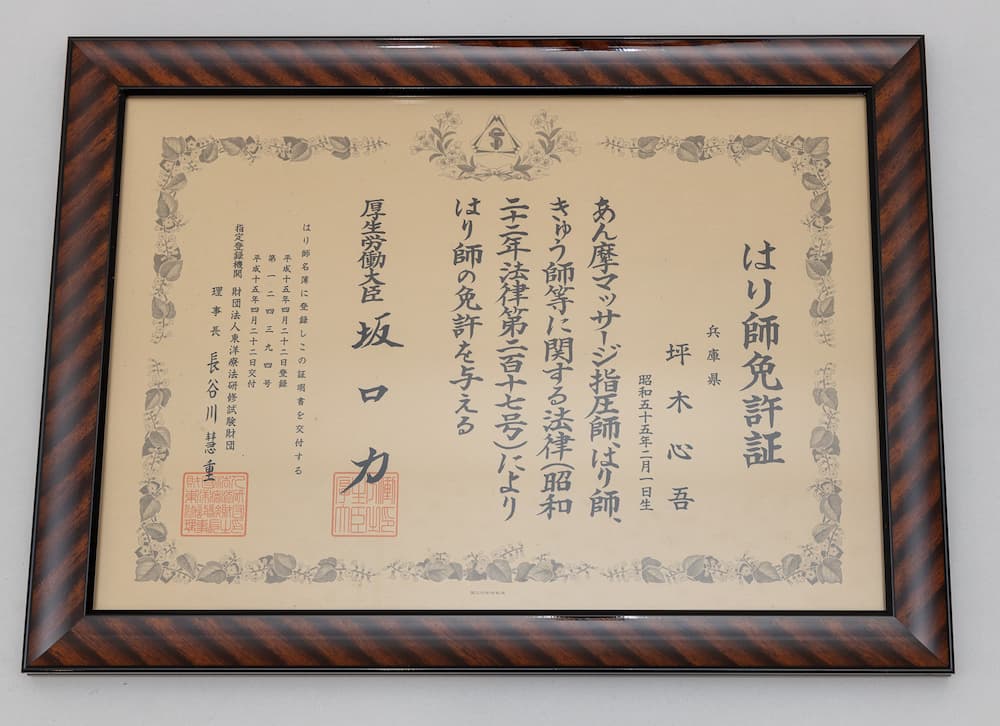 はり師免許証
兵庫県
坪木心吾
昭和五十五年二月一日生
あん摩マッサージ指圧師、はり師、
きゅう師等に関する法律(昭和
二十二年法律第二百十七号)により
はり師の免許を与える
厚生労働大臣 坂口力
はり師名簿に登録しこの証明書を交付する
平成十五年四月二十二日登録
第一二四三九四号
平成十五年四月二十二日交付
指定登録機関 財団法人東洋療法研修試験財団
理事長 長谷川慧重